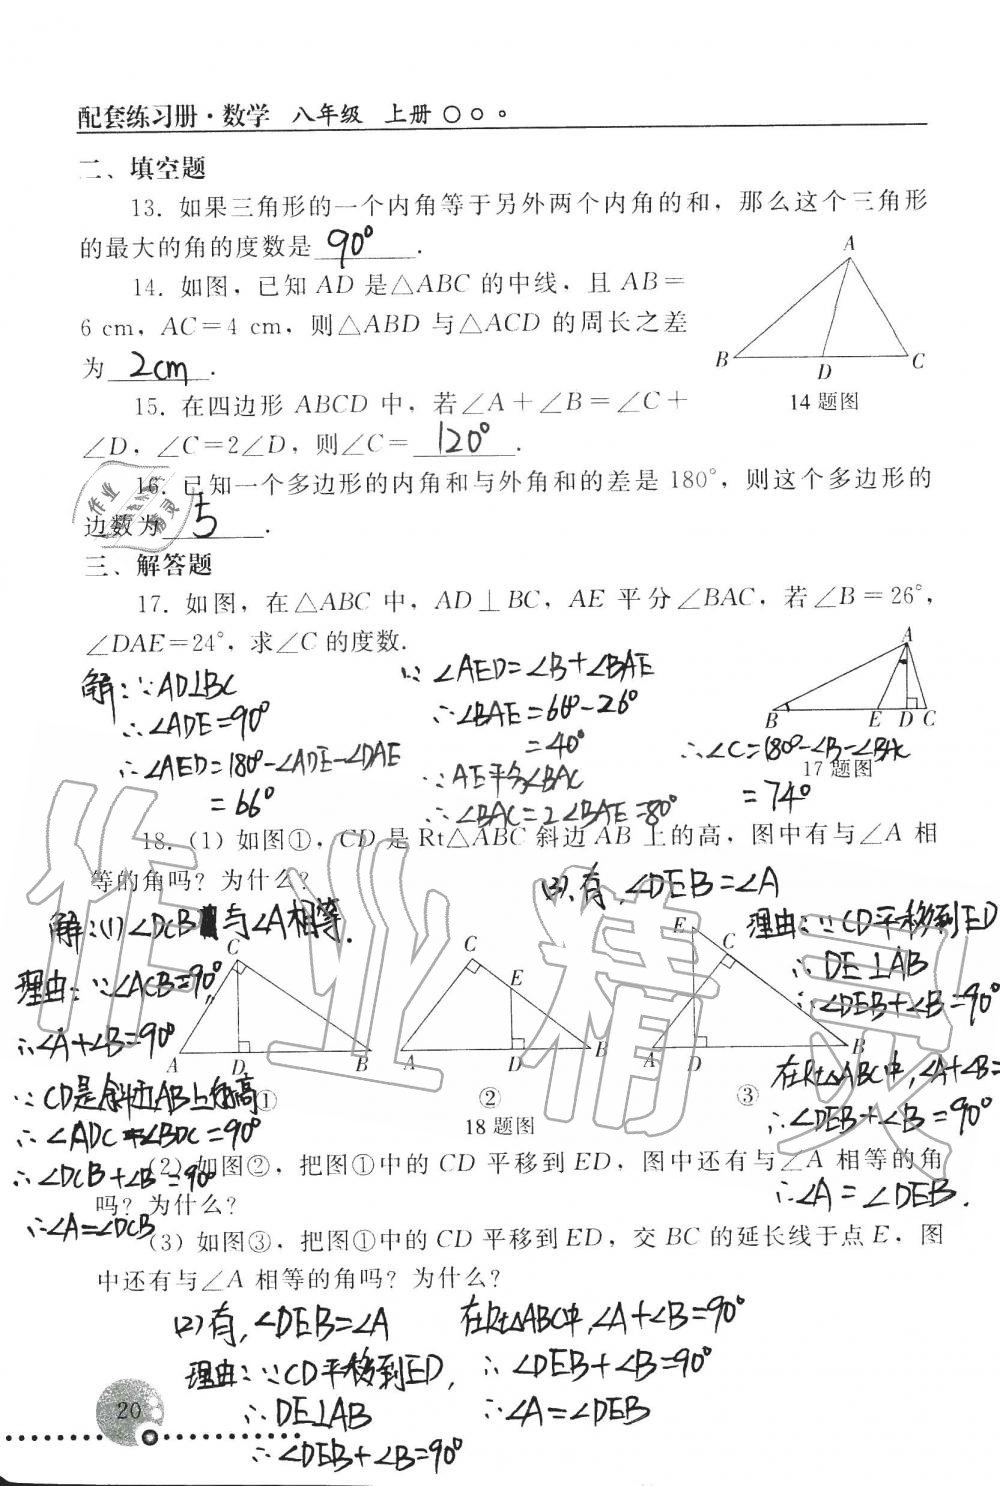 配套练习册·数学 八年级 上册
二、填空题
13. 如果三角形的一个内角等于另外两个内角的和，那么这个三角形
的最大的角的度数是 90° .
14. 如图，已知 AD 是△ABC 的中线，且 AB=
6 cm，AC=4 cm，则△ABD 与△ACD 的周长之差
为 2cm .
A
B
D
C
14 题图
15. 在四边形 ABCD 中，若∠A+∠B=∠C+
∠D，∠C=2∠D，则∠C= 120° .
16. 已知一个多边形的内角和与外角和的差是 180°，则这个多边形的
边数为 5 .
三、解答题
17. 如图，在△ABC 中，AD⊥BC，AE 平分∠BAC，若∠B=26°，
∠DAE=24°，求∠C 的度数.
解：∵AD⊥BC
∴∠ADE=90°
∴∠AED=180°-∠ADE-∠DAE
=66°
∵∠AED=∠B+∠BAE
∴∠BAE=66°-26°
=40°
∵AE平分∠BAC
∴∠BAC=2∠BAE=80°
A
B
E
D
C
17 题图
∴∠C=180°-∠B-∠BAC
=74°
18. (1) 如图①，CD 是 Rt△ABC 斜边 AB 上的高，图中有与∠A 相
等的角吗？为什么？
解：(1)∠DCB与∠A相等.
理由：∵∠ACB=90°,
∴∠A+∠B=90°
∵CD是斜边AB上的高
∴∠ADC=∠BDC=90°
∴∠DCB+∠B=90°
∴∠A=∠DCB
C
A
D
B
①
C
E
A
D
B
②
E
C
A
D
B
③
18 题图
(3).有,∠DEB=∠A
理由：∵CD平移到ED
∴DE⊥AB
∴∠DEB+∠B=90°
在Rt△ABC中,∠A+∠B=
∴∠DEB+∠B=90°
∴∠A=∠DEB.
(2) 如图②，把图①中的 CD 平移到 ED，图中还有与∠A 相等的角
吗？为什么？
(3) 如图③，把图①中的 CD 平移到 ED，交 BC 的延长线于点 E，图
中还有与∠A 相等的角吗？为什么？
(2)有,∠DEB=∠A
理由：∵CD平移到ED,
∴DE⊥AB
∴∠DEB+∠B=90°
在Rt△ABC中,∠A+∠B=90°
∴∠DEB+∠B=90°
∴∠A=∠DEB
20
作业精灵